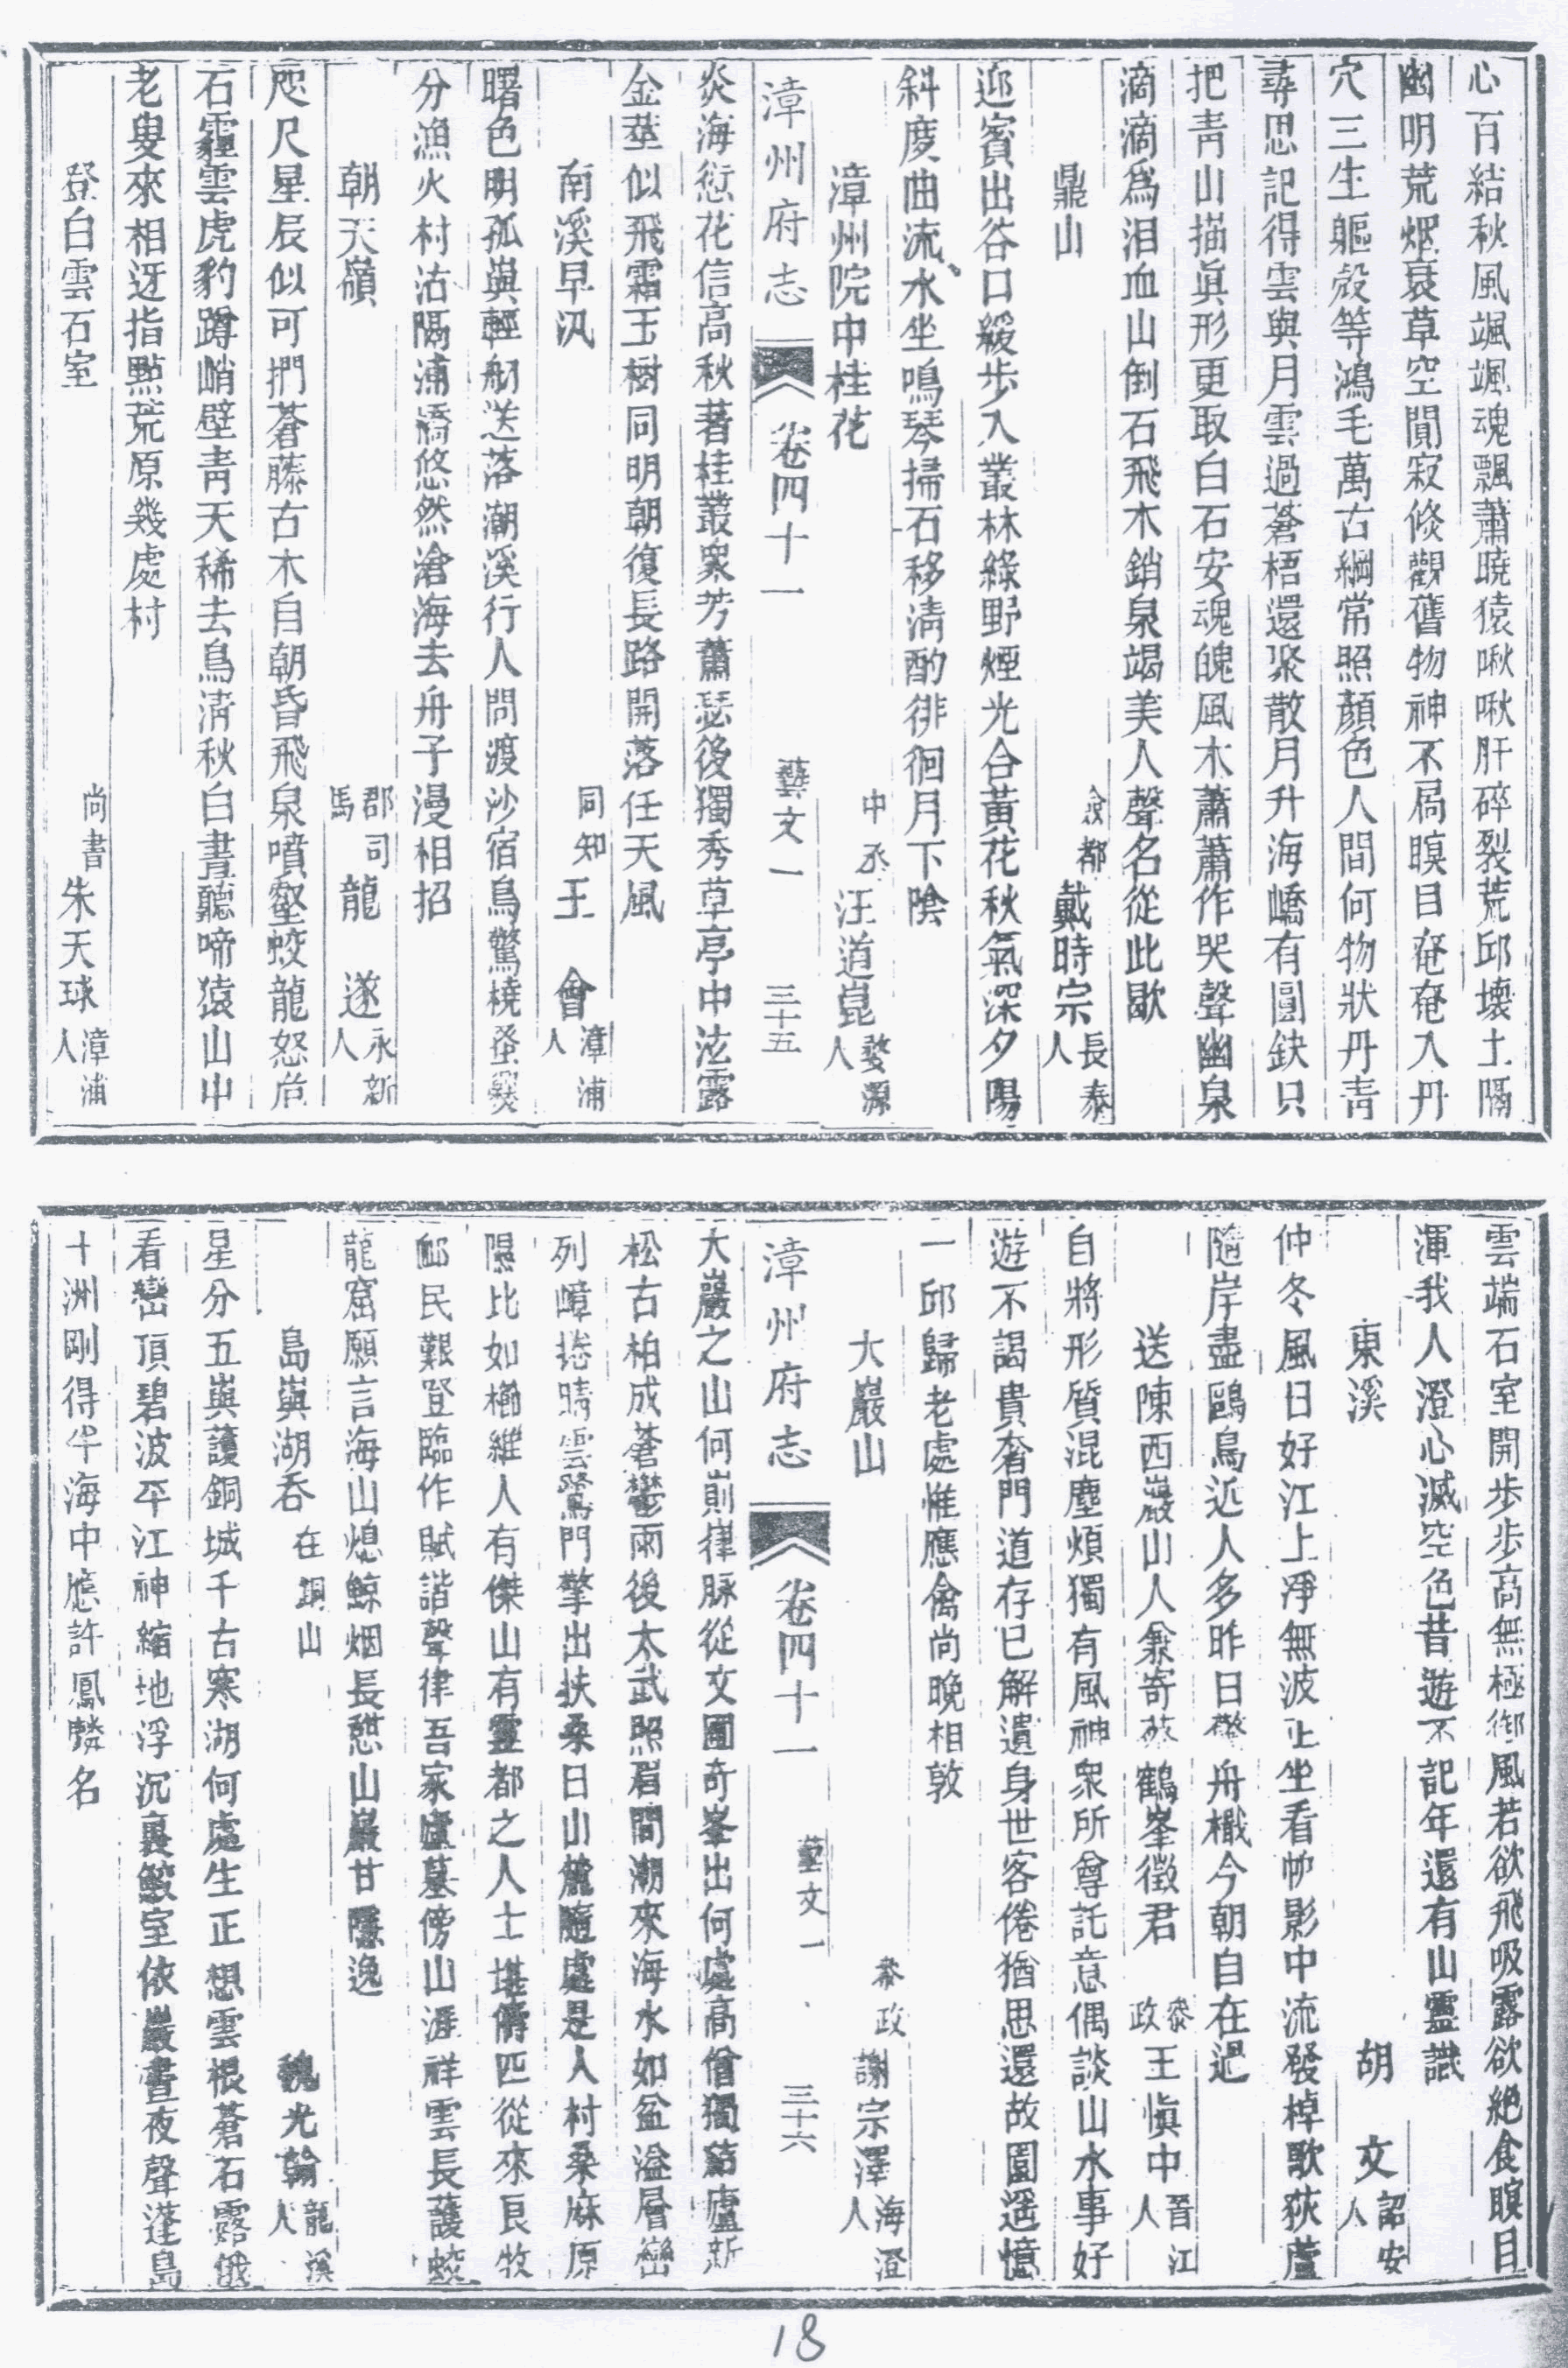 心百結秋風颯颯魂飄蕭曉猿啾啾肝碎裂荒邱壞土隔
幽明荒烟衰草空閴寂倐觀舊物神不扃暝目奄奄入丹
穴三生軀殻等鴻毛萬古綱常照顔色人間何物狀丹青
尋思記得雲與月雲過蒼梧還聚散月升海嶠有圓鈌只
把青山描眞形更取白石安魂魄風木蕭蕭作哭聲幽泉
滴滴爲泪血山倒石飛木銷泉竭美人聲名從此歇
鼎山 僉都戴時宗長泰人
迎賓出谷口緩步入叢林綠野煙光合黃花秋氣深夕陽
斜度曲流水坐鳴琴掃石移淸酌徘徊月下陰
漳州院中桂花 中丞汪道崑婺源人
漳州府志 卷四十一 藝文一 三十五
炎海愆花信高秋著桂叢衆芳蕭瑟後獨秀草亭中泫露
金莖似飛霜玉樹同明朝復長路開落任天風
南溪早汎 同知王會漳浦人
曙色明孤嶼輕舠送落潮溪行人問渡沙宿鳥驚橈蚤爨
分漁火村沽隔浦橋悠然滄海去舟子漫相招
朝天嶺 郡司馬龍遂永新人
咫尺星辰似可捫蒼藤古木自朝昏飛泉噴壑蛟龍怒危
石霾雲虎豹蹲峭壁青天稀去鳥淸秋白晝聽啼猿山中
老叟來相迓指點荒原幾處村
登白雲石室 尚書朱天球漳浦人
雲端石室開步步高無極御風若欲飛吸露欲絶食暝目
渾我人澄心滅空色昔遊不記年還有山靈識
東溪 胡文詔安人
仲冬風日好江上淨無波止坐看帆影中流發棹歌荻蘆
隨岸盡鷗鳥近人多昨日舟檝今朝自在過
送陳西巖山人兼寄蔡鶴峯徵君 叅政王愼中晉江人
自將形質混塵煩獨有風神衆所尊託意偶談山水事好
遊不謁貴奢門道存已解遺身世客倦猶思還故園遥憶
一邱歸老處惟應禽尚晚相敦
大巖山 叅政謝宗澤海澄人
漳州府志 卷四十一 藝文一 三十六
大巖之山何崱嵂脉從文圃奇峯出何處高僧獨結廬新
松古柏成蒼鬱雨後太武照眉間潮來海水如盆溢層巒
列嶂捲晴雲鷺門擎出扶桑日山麓隨處是人村桑麻原
隰比如櫛維人有傑山有靈都之人士堪儔匹從來良牧
邮民艱登臨作賦諧聲律吾家廬墓傍山涯祥雲長護蛟
龍窟願言海山熄鯨烟長憇山巖甘隱逸
島嶼湖吞在銅山 魏光翰龍溪人
星分五嶼護銅城千古寒湖何處生正想雲根蒼石露俄
看巒頂碧波平江神縮地浮沉裏鮫室依巖晝夜聲蓬島
十洲剛得半海中應許鳳麟名
18